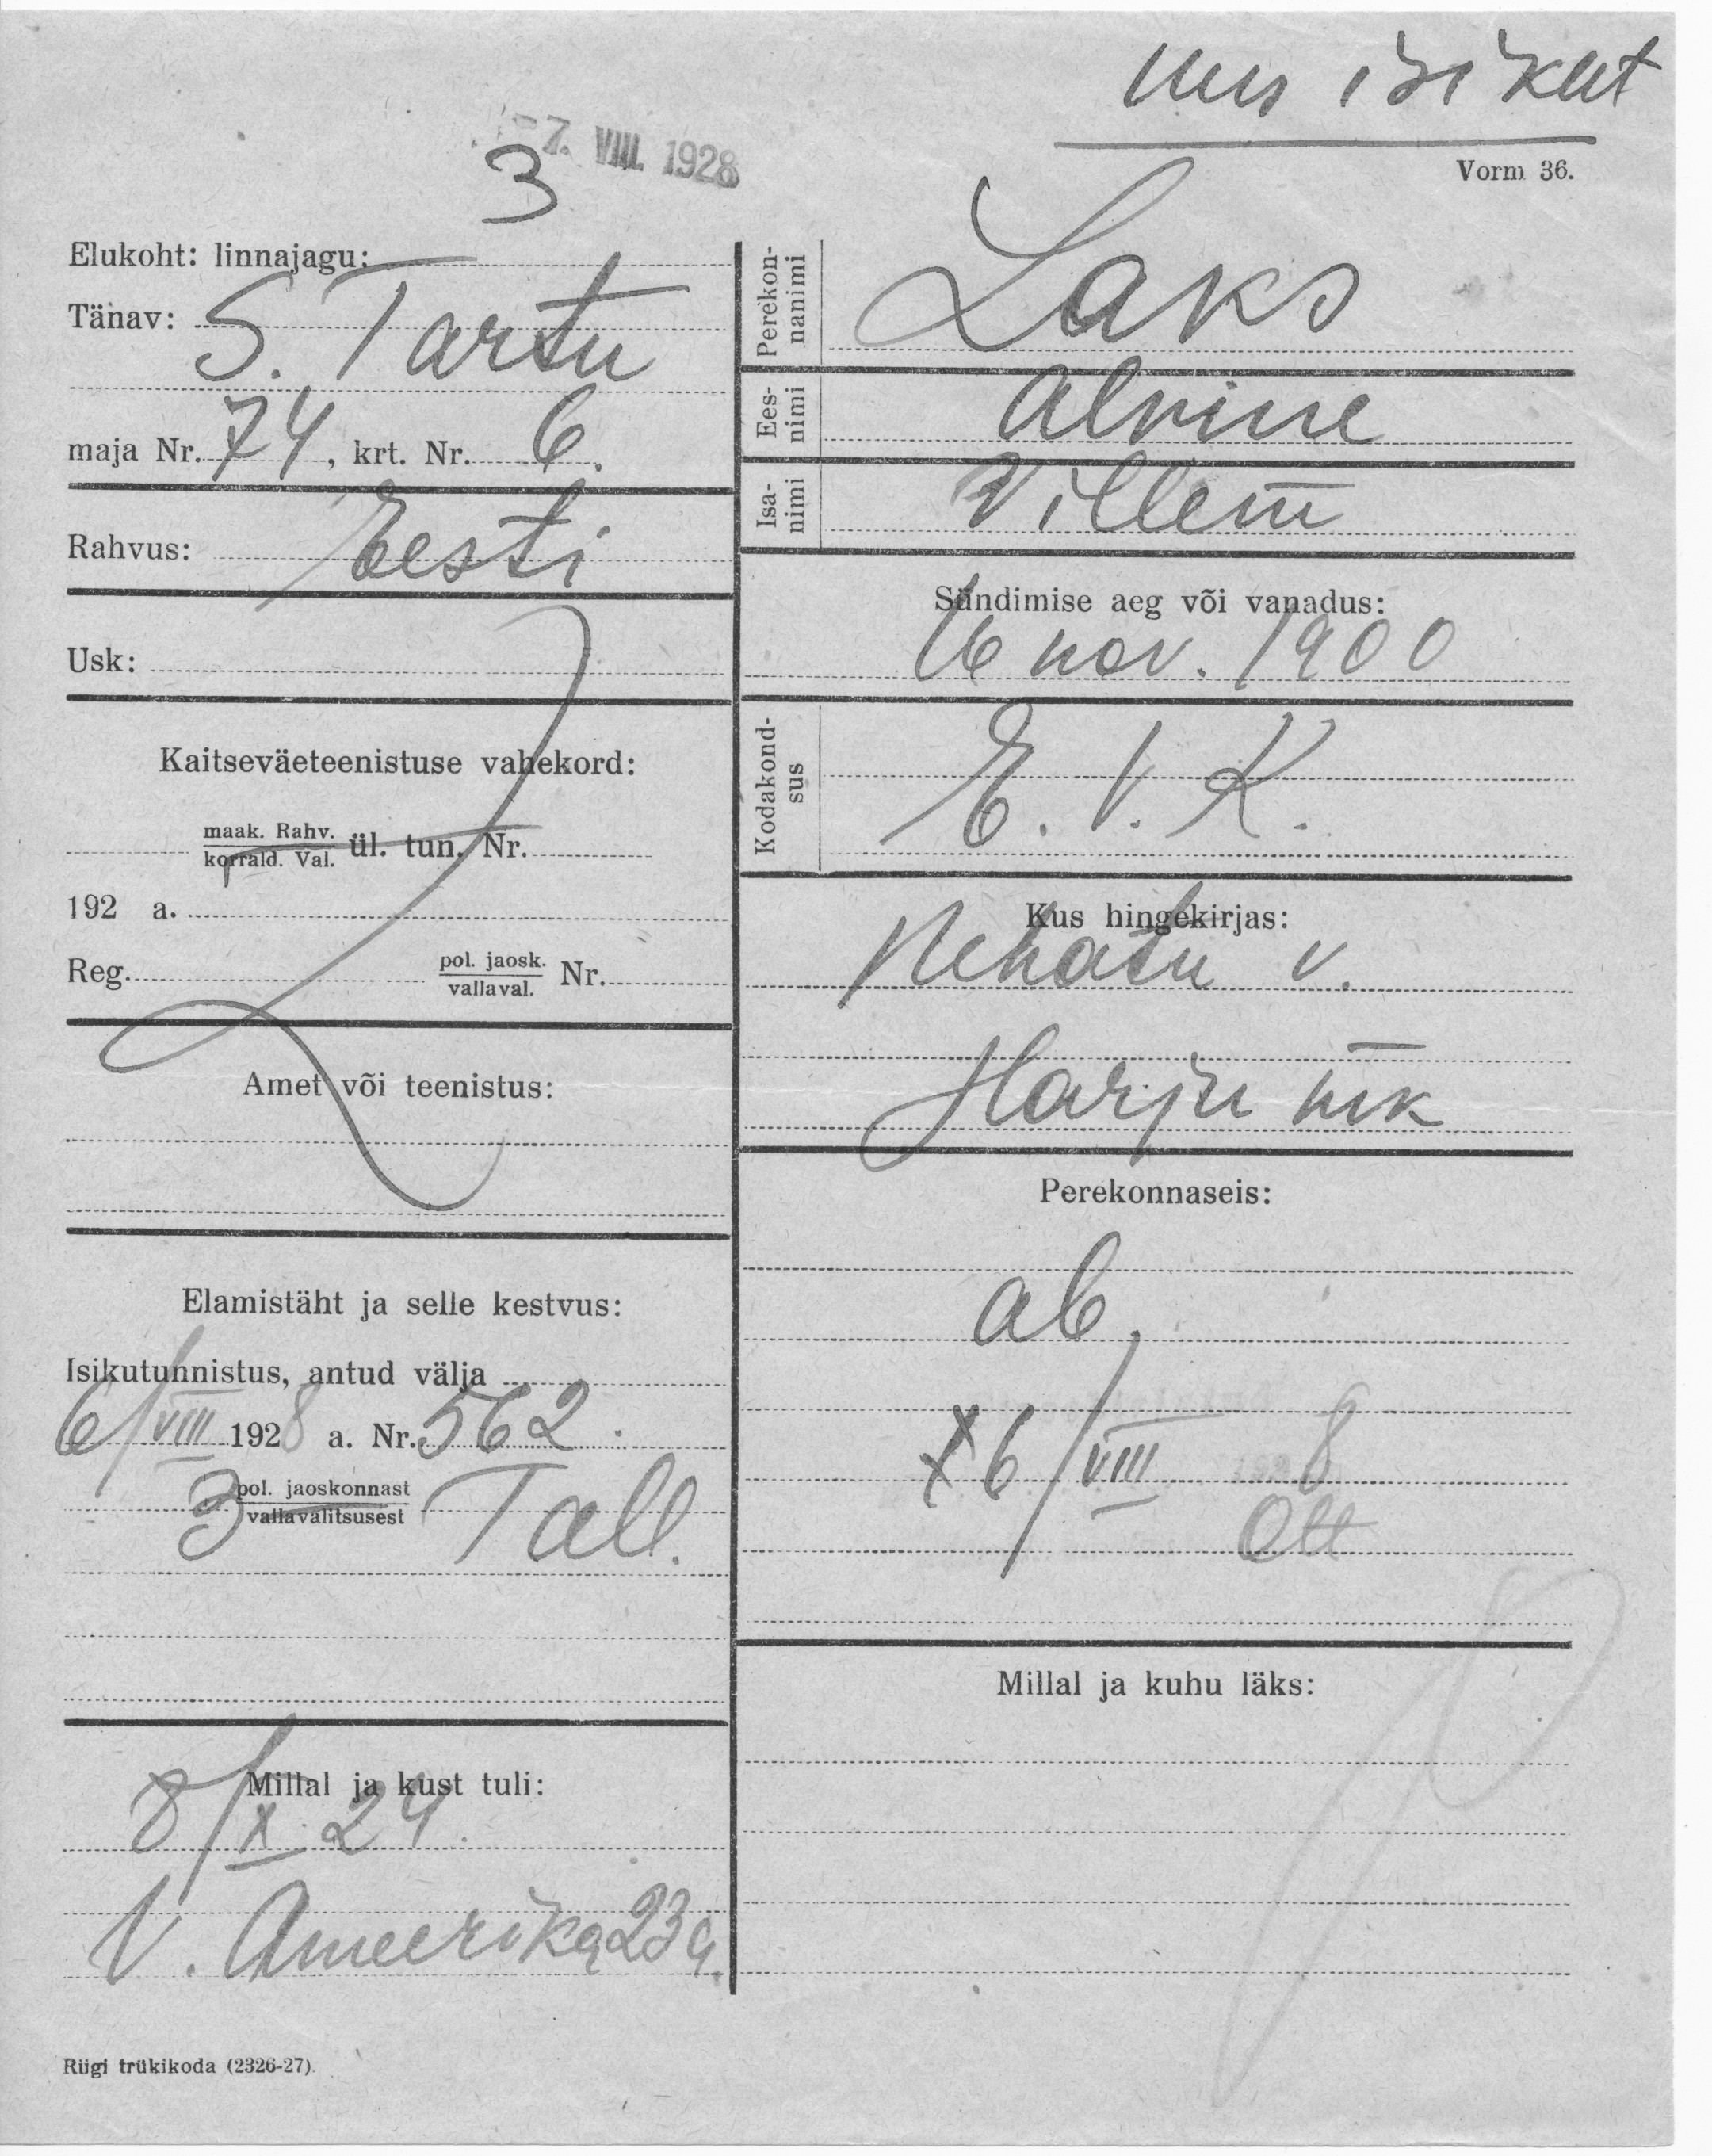 uus isikut
-7. VIII. 1928
3
Vorm 36.
Elukoht: linnajagu:
Tänav: S. Tartu
maja Nr. 74, krt. Nr. 6.
Rahvus: Eesti
Usk:
Kaitseväeteenistuse vahekord:
maak. Rahv.
korrald. Val. ül. tun. Nr.
192 a.
Reg. pol. jaosk.
vallaval. Nr.
Amet või teenistus:
Elamistäht ja selle kestvus:
Isikutunnistus, antud välja
6/VIII 1928 a. Nr. 562.
3 pol. jaoskonnast
vallavalitsusest Tall.
Millal ja kust tuli:
8/X 24.
V. Ameerika 23a.
Riigi trükikoda (2326-27).
Perekon-
nanimi Laks
Ees-
nimi Alvine
Isa-
nimi Villem
Sündimise aeg või vanadus:
16 nov. 1900
Kodakond-
sus E. V. K.
Kus hingekirjas:
Nehatu v.
Harju mk
Perekonnaseis:
ab.
x 6/VIII 8
Ott
Millal ja kuhu läks: